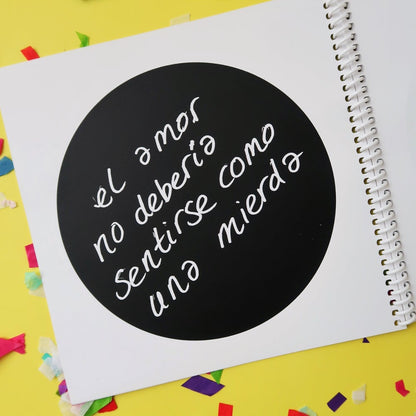 el amor
no deberia
sentirse como
una mierda